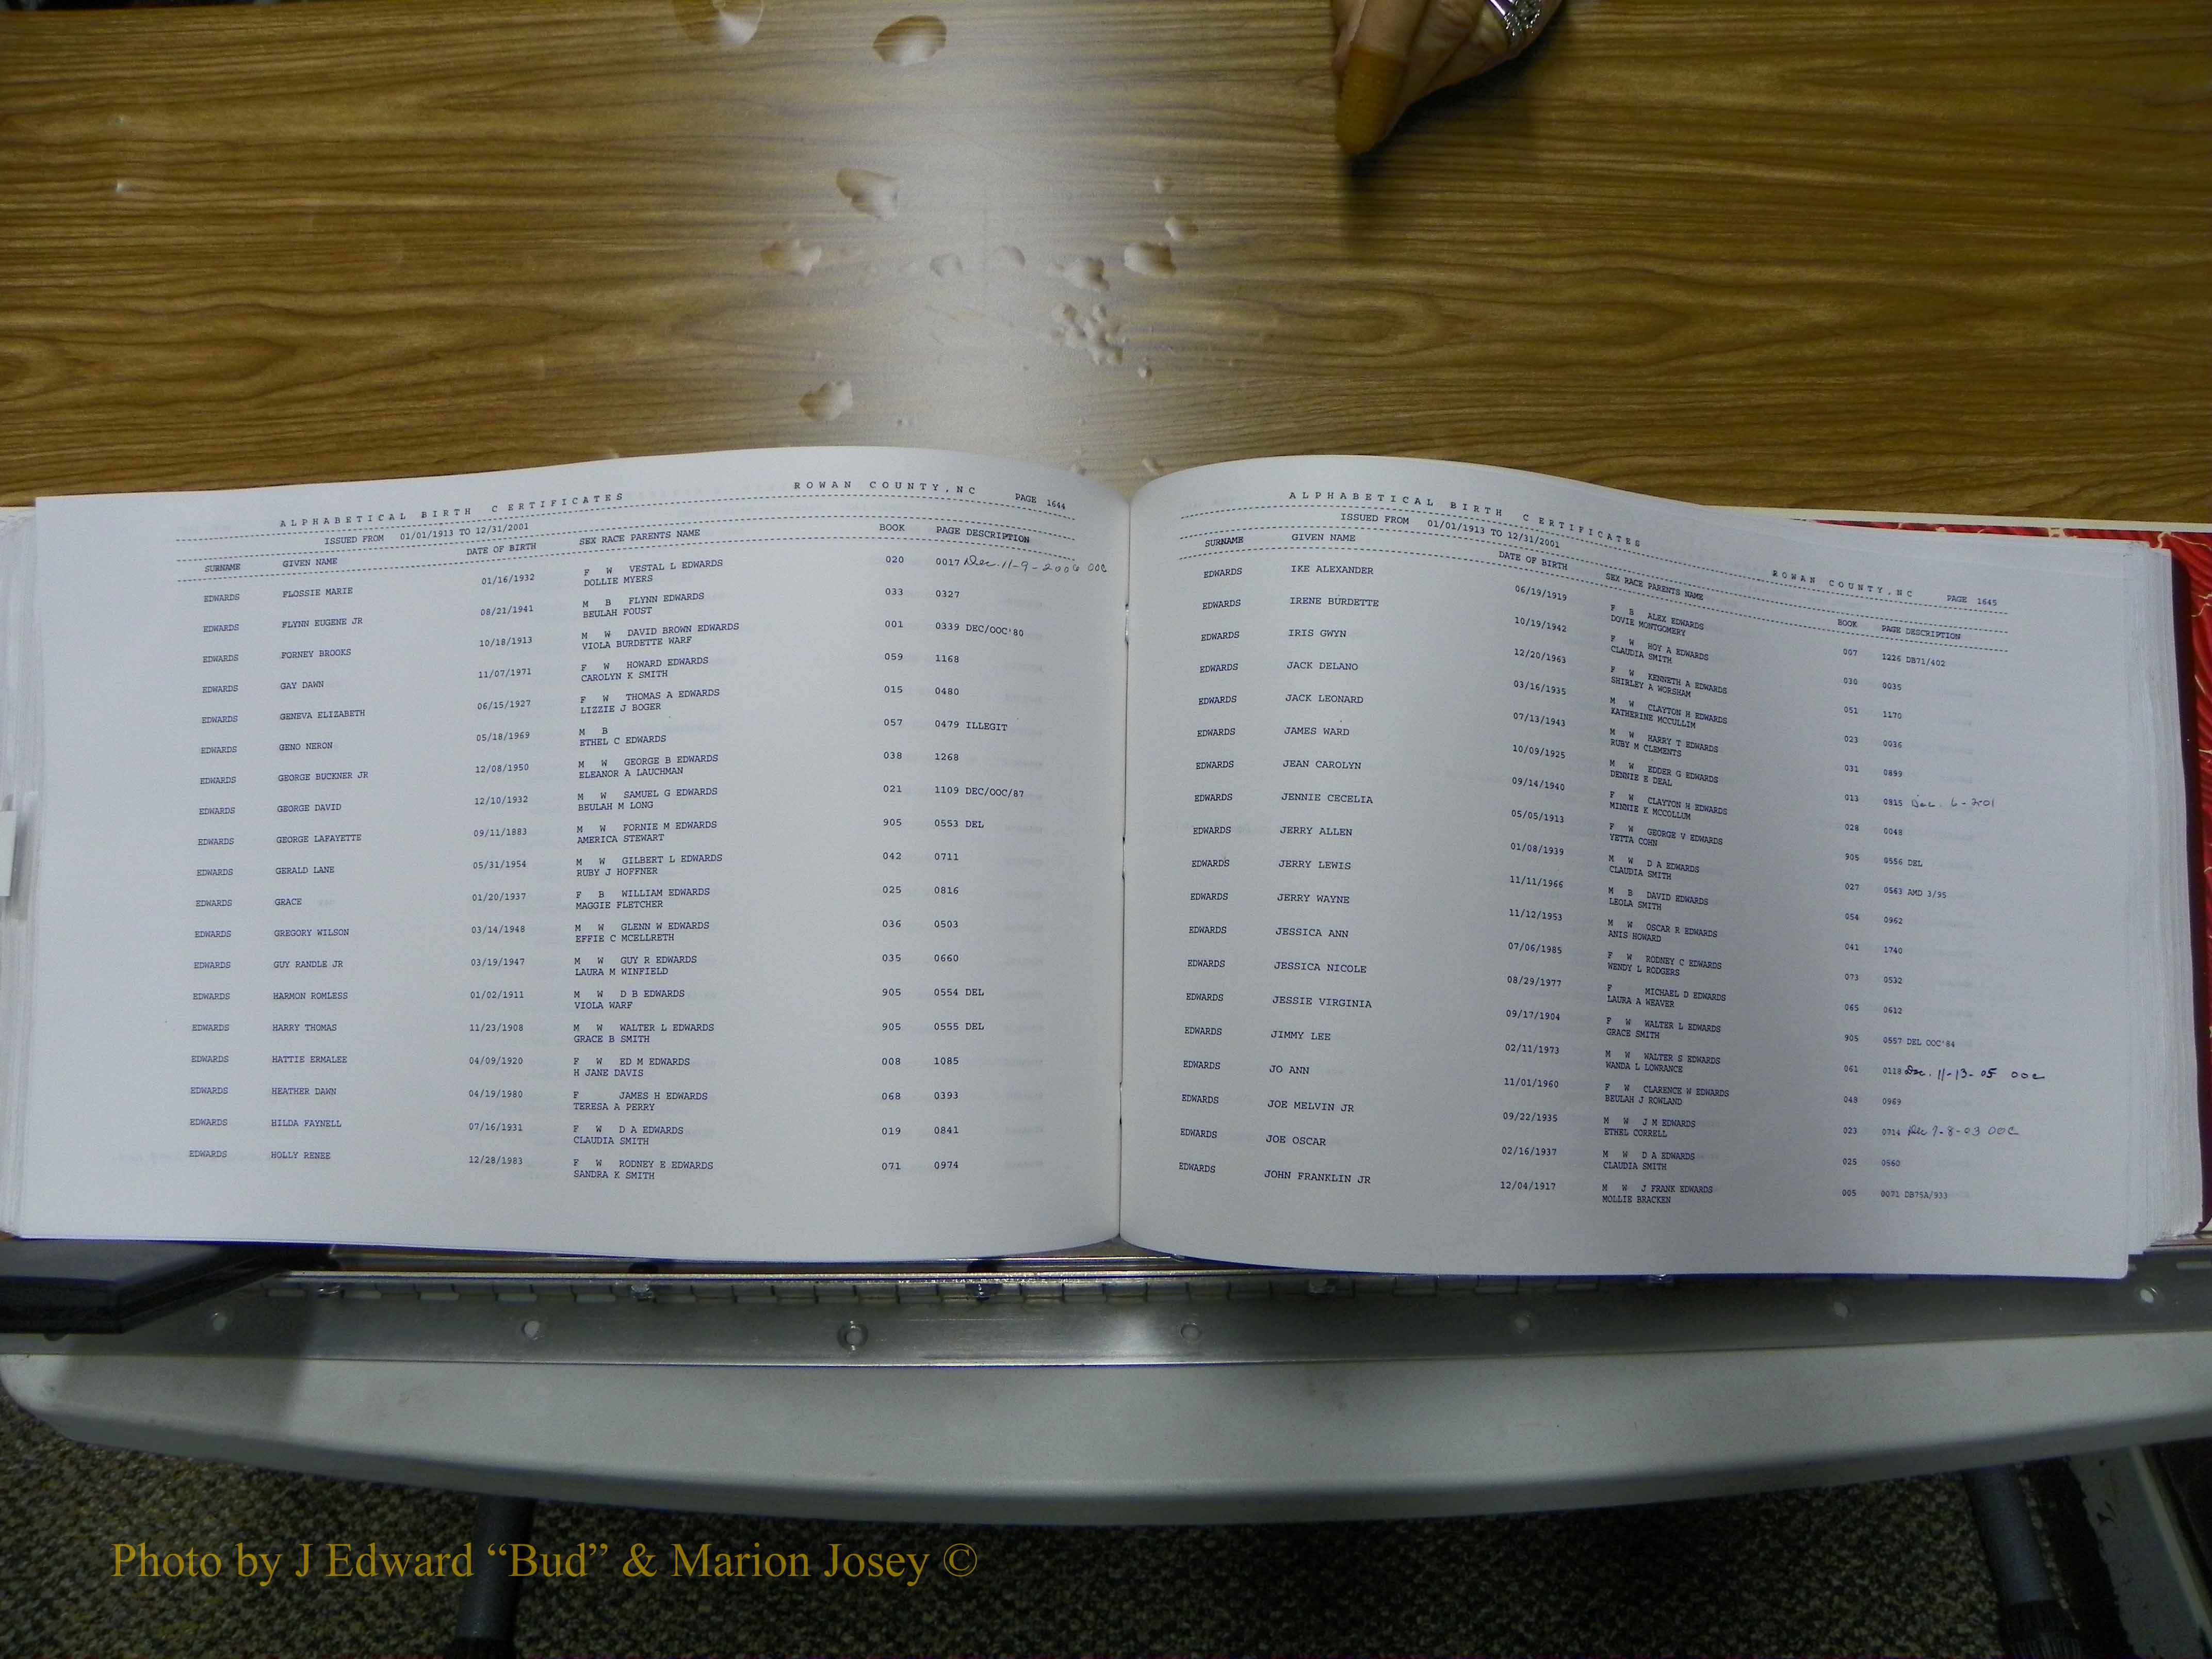 ALPHABETICAL BIRTH CERTIFICATES ROWAN COUNTY, NC PAGE 1644
ISSUED FROM 01/01/1913 TO 12/31/2001
SURNAME GIVEN NAME DATE OF BIRTH SEX RACE PARENTS NAME BOOK PAGE DESCRIPTION
EDWARDS FLOSSIE MARIE 01/16/1932 F W VESTAL L EDWARDS 020 0017 Dec. 11-9-2006 OOC
DOLLIE MYERS
EDWARDS FLYNN EUGENE JR 08/21/1941 M B FLYNN EDWARDS 033 0327
BEULAH FOUST
EDWARDS FORNEY BROOKS 10/18/1913 M W DAVID BROWN EDWARDS 001 0339 DEC/OOC'80
VIOLA BURDETTE WARF
EDWARDS GAY DAWN 11/07/1971 F W HOWARD EDWARDS 059 1168
CAROLYN K SMITH
EDWARDS GENEVA ELIZABETH 06/15/1927 F W THOMAS A EDWARDS 015 0480
LIZZIE J BOGER
EDWARDS GENO NERON 05/18/1969 M B 057 0479 ILLEGIT
ETHEL C EDWARDS
EDWARDS GEORGE BUCKNER JR 12/08/1950 M W GEORGE B EDWARDS 038 1268
ELEANOR A LAUCHMAN
EDWARDS GEORGE DAVID 12/10/1932 M W SAMUEL G EDWARDS 021 1109 DEC/OOC/87
BEULAH M LONG
EDWARDS GEORGE LAFAYETTE 09/11/1883 M W FORNIE M EDWARDS 905 0553 DEL
AMERICA STEWART
EDWARDS GERALD LANE 05/31/1954 M W GILBERT L EDWARDS 042 0711
RUBY J HOFFNER
EDWARDS GRACE 01/20/1937 F B WILLIAM EDWARDS 025 0816
MAGGIE FLETCHER
EDWARDS GREGORY WILSON 03/14/1948 M W GLENN W EDWARDS 036 0503
EFFIE C MCELLRETH
EDWARDS GUY RANDLE JR 03/19/1947 M W GUY R EDWARDS 035 0660
LAURA M WINFIELD
EDWARDS HARMON ROMLESS 01/02/1911 M W D B EDWARDS 905 0554 DEL
VIOLA WARF
EDWARDS HARRY THOMAS 11/23/1908 M W WALTER L EDWARDS 905 0555 DEL
GRACE B SMITH
EDWARDS HATTIE ERMALEE 04/09/1920 F W ED M EDWARDS 008 1085
H JANE DAVIS
EDWARDS HEATHER DAWN 04/19/1980 F JAMES H EDWARDS 068 0393
TERESA A PERRY
EDWARDS HILDA FAYNELL 07/16/1931 F W D A EDWARDS 019 0841
CLAUDIA SMITH
EDWARDS HOLLY RENEE 12/28/1983 F W RODNEY E EDWARDS 071 0974
SANDRA K SMITH
ALPHABETICAL BIRTH CERTIFICATES ROWAN COUNTY, NC PAGE 1645
ISSUED FROM 01/01/1913 TO 12/31/2001
SURNAME GIVEN NAME DATE OF BIRTH SEX RACE PARENTS NAME BOOK PAGE DESCRIPTION
EDWARDS IKE ALEXANDER 06/19/1919 F B ALEX EDWARDS 007 1226 DB71/402
DOVIE MONTGOMERY
EDWARDS IRENE BURDETTE 10/19/1942 F W HOY A EDWARDS 030 0035
CLAUDIA SMITH
EDWARDS IRIS GWYN 12/20/1963 F W KENNETH A EDWARDS 051 1170
SHIRLEY A WORSHAM
EDWARDS JACK DELANO 03/16/1935 M W CLAYTON H EDWARDS 023 0036
KATHERINE MCCULLIM
EDWARDS JACK LEONARD 07/13/1943 M W HARRY T EDWARDS 031 0899
RUBY M CLEMENTS
EDWARDS JAMES WARD 10/09/1925 M W EDDER G EDWARDS 013 0815 Dec. 6-201
DENNIE E DEAL
EDWARDS JEAN CAROLYN 09/14/1940 F W CLAYTON H EDWARDS 028 0048
MINNIE K MCCOLLUM
EDWARDS JENNIE CECELIA 05/05/1913 F W GEORGE V EDWARDS 905 0556 DEL
YETTA COHN
EDWARDS JERRY ALLEN 01/08/1939 M W D A EDWARDS 027 0563 AMD 3/95
CLAUDIA SMITH
EDWARDS JERRY LEWIS 11/11/1966 M B DAVID EDWARDS 054 0962
LEOLA SMITH
EDWARDS JERRY WAYNE 11/12/1953 M W OSCAR R EDWARDS 041 1740
ANIS HOWARD
EDWARDS JESSICA ANN 07/06/1985 F W RODNEY C EDWARDS 073 0532
WENDY L RODGERS
EDWARDS JESSICA NICOLE 08/29/1977 F MICHAEL D EDWARDS 065 0612
LAURA A WEAVER
EDWARDS JESSIE VIRGINIA 09/17/1904 F W WALTER L EDWARDS 905 0557 DEL OOC'84
GRACE SMITH
EDWARDS JIMMY LEE 02/11/1973 M W WALTER S EDWARDS 061 0118 Dec. 11-13-05 OOC
WANDA L LOWRANCE
EDWARDS JO ANN 11/01/1960 F W CLARENCE W EDWARDS 048 0969
BEULAH J ROWLAND
EDWARDS JOE MELVIN JR 09/22/1935 M W J M EDWARDS 023 0714 Dec 7-8-03 OOC
ETHEL CORRELL
EDWARDS JOE OSCAR 02/16/1937 M W D A EDWARDS 025 0560
CLAUDIA SMITH
EDWARDS JOHN FRANKLIN JR 12/04/1917 M W J FRANK EDWARDS 005 0071 DB75A/933
MOLLIE BRACKEN
Photo by J Edward “Bud” & Marion Josey ©